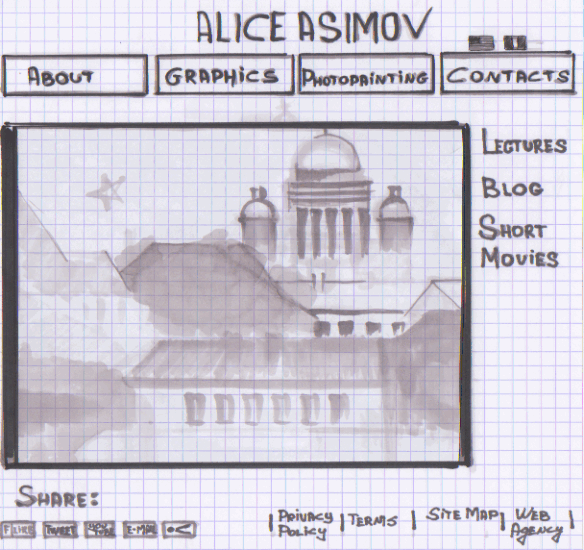 ALICE ASIMOV
ABOUT
GRAPHICS
PHOTOPAINTING
CONTACTS
LECTURES
BLOG
SHORT
MOVIES
SHARE:
TWEET
E-MAIL
PRIVACY
POLICY
TERMS
SITE MAP
WEB
AGENCY